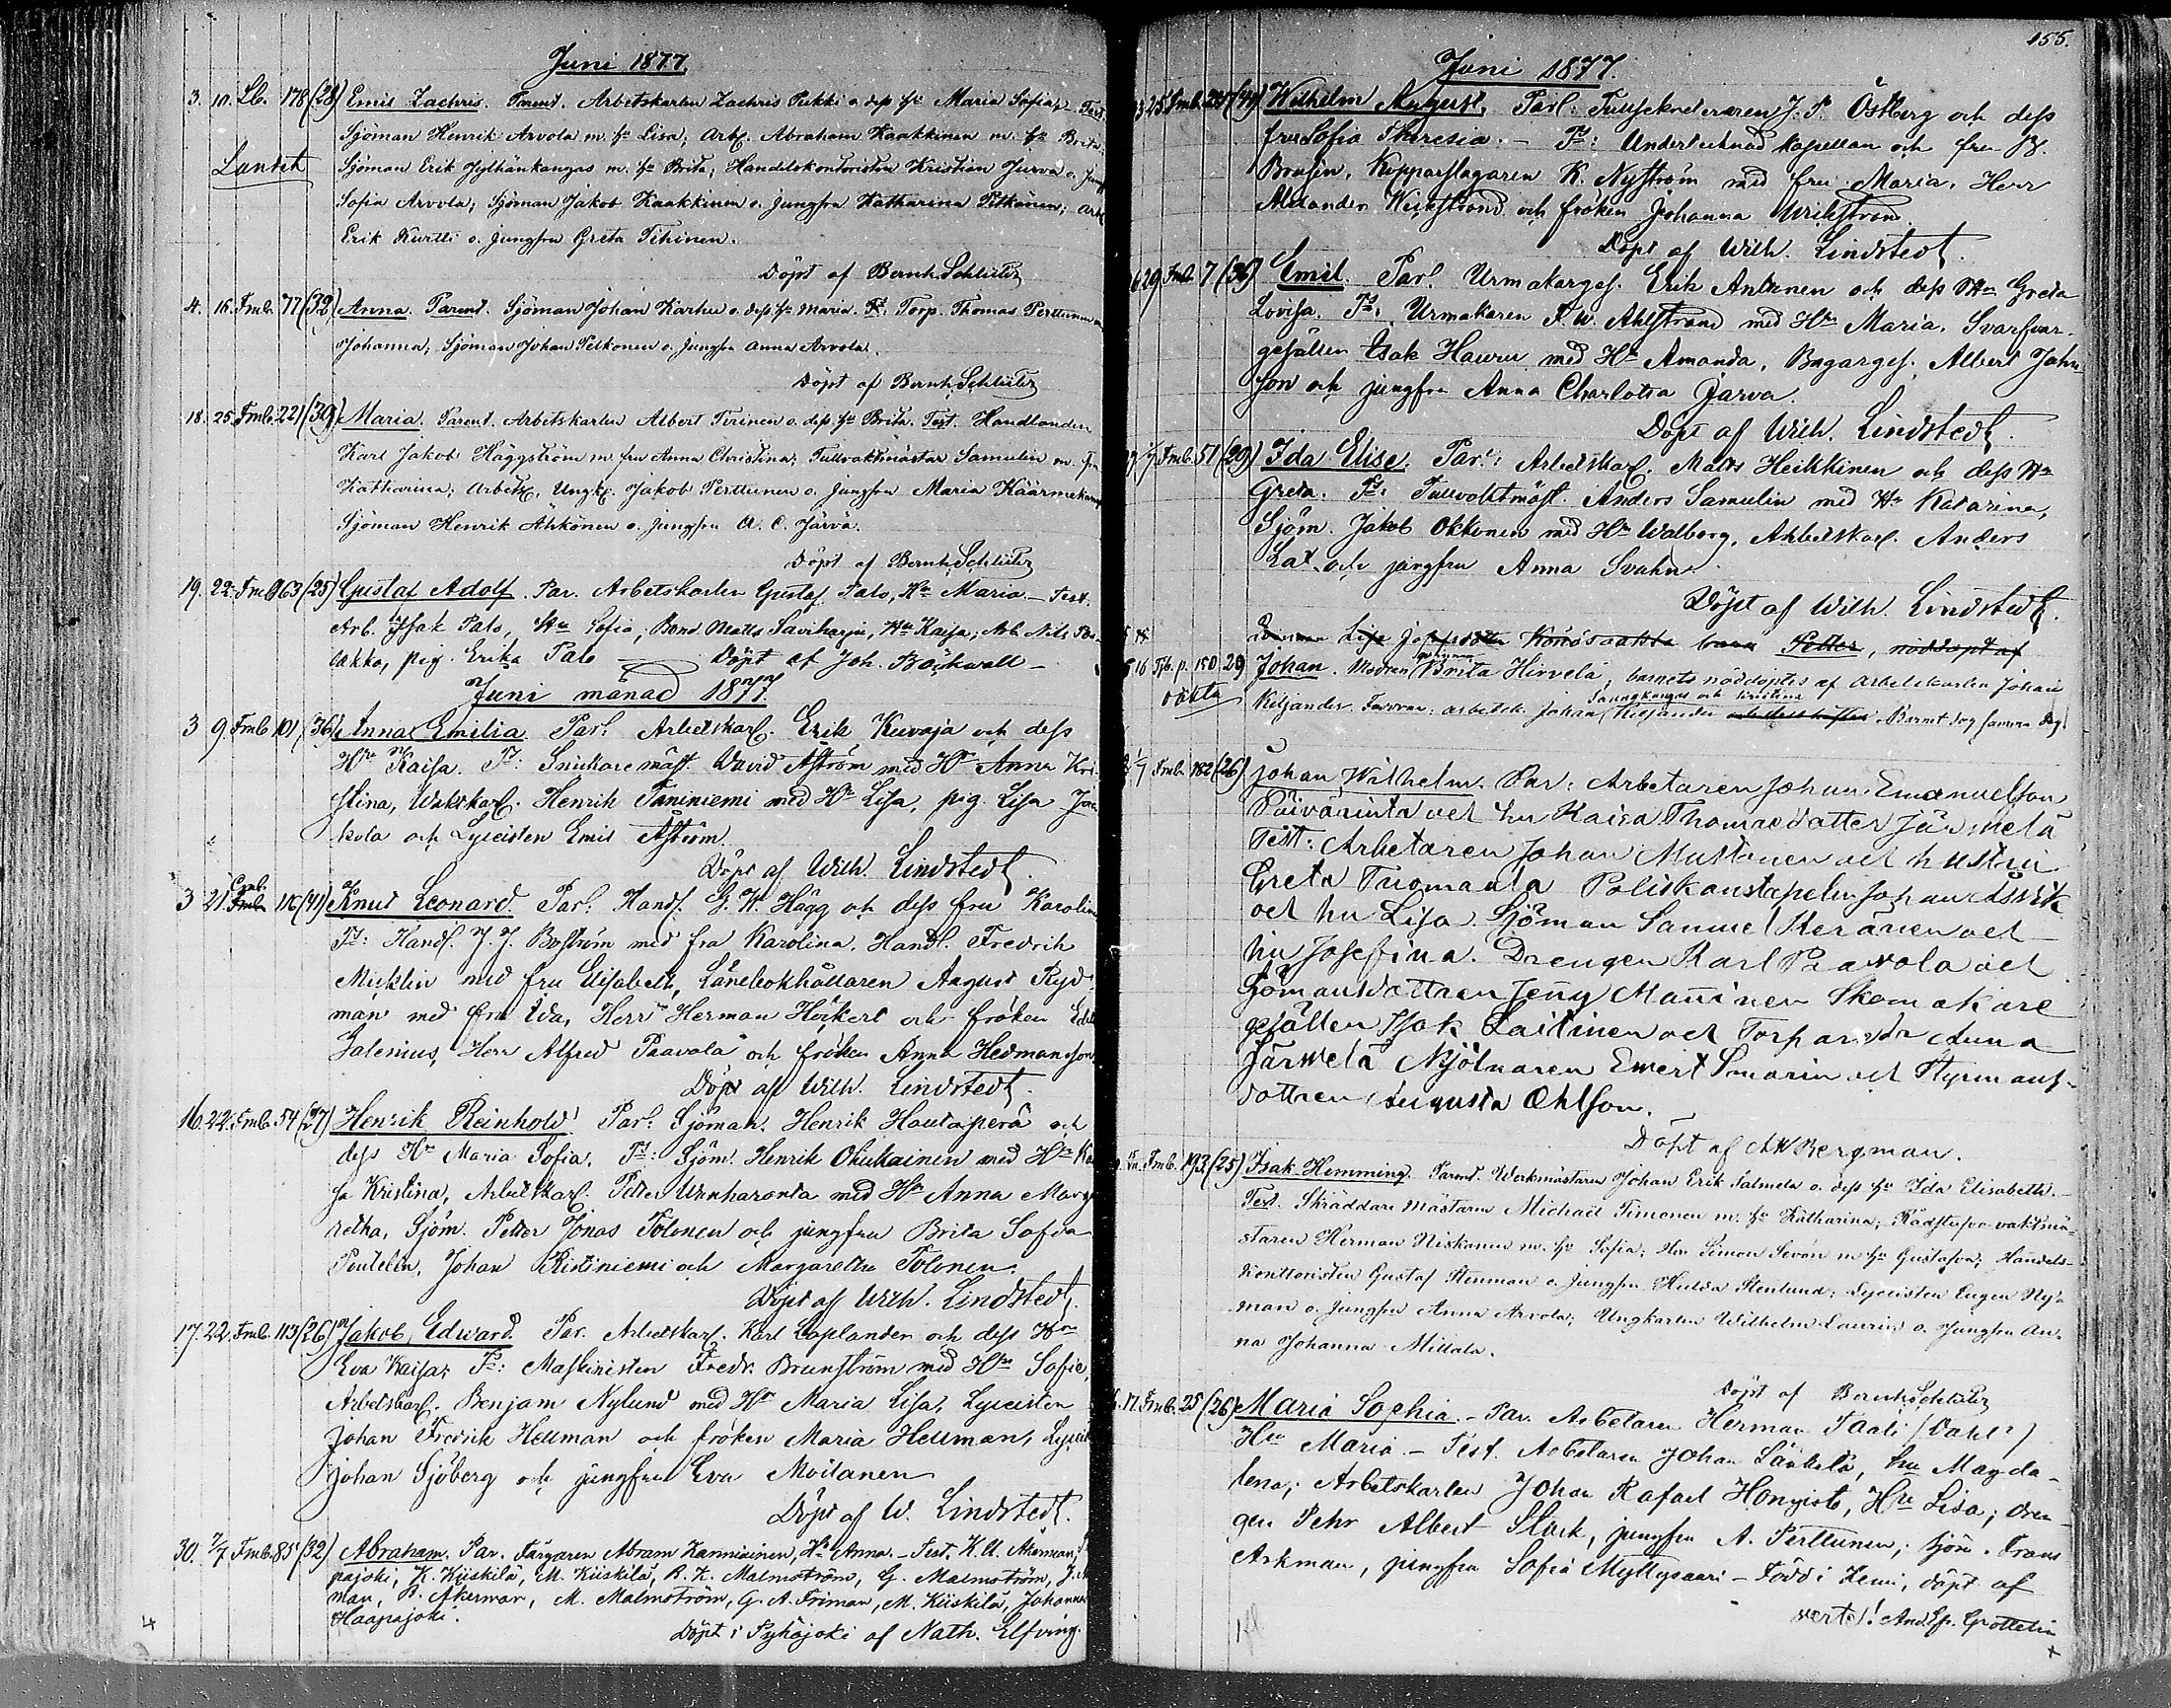 Juni 1877.
3. 10. Lb. 178 (28) Emil Zachris. Parent. Arbetskarlen Zachris Pukki o. dess h:u Maria Sofia, Test.
Sjöman Henrik Arvola m. h:u Lisa; Arb. Abraham Kaakkinen m. h:u Brita;
Landet Sjöman Erik Jylhänkangas m. h:u Brita; Handelskontoristen Kristian Jurva o. jungf
Sofia Arvola; Sjöman Jakob Kaakkinen o. jungfru Katharina Pitkänen; Arb
Erik Kurtti o. jungfru Greta Tihinen.
Döpt af Bernh. Schlüter
4. 16. Fmb. 77 (32) Anna. Parent. Sjöman Johan Karhu o. dess h:u Maria. T: Torp. Thomas Perttunen
Johanna; Sjöman Johan Pelkonen o. jungfru Anna Arvola.
Döpt af Bernh. Schlüter
18. 25. Fmb. 221 (39) Maria. Parent. Arbetskarlen Albert Tirinen o. dess h:u Brita. Test. Handlanden
Karl Jakob Häggström m. fru Anna Christina; Tullvaktmästar Samulin m. fru
Katharina; Arbetsk. Ungk. Jakob Perttunen o. jungfru Maria Käärmekangas
Sjöman Henrik Ähkönen o. jungfru A. C. Järvä.
Döpt af Bernh. Schlüter
19. 22. Fmb 163 (25) Gustaf Adolf. Par. Arbetskarlen Gustaf Palo, H:u Maria. Test.
Arb. Isak Palo, H:u Sofia, Bond. Matts Saviharju, H:u Kaisa; Arb. Nils
lakka, pig. Erika Palo — Döpt af Joh. Bäckwall —
Juni månad 1877.
3 9. Fmb 101 (36) Anna Emilia. Par: Arbetskarl. Erik Kuvaja och dess
H:u Kaisa. T: Snickaremäst. David Åström med H:u Anna Kri-
stina, Arbetskarl. Henrik Taniniemi med H:u Lisa, pig. Lisa
kola och Lyceisten Emil Åström.
Döpt af Wilh. Lindstedt.
3 21. Cmb. Fmb. 116 (41) Knut Leonard. Par: Handl. G. W. Hägg och dess fru Karolin
T: Handl. J. J. Boström med fru Karolina. Handl. Fredrik
Micklin med fru Elisabeth, Länebokhållaren August Ryd-
man med fru Ida, Herr Herman Höckert och fröken
Jalenius, Herr Alfred Paavola och fröken Anna Hedmansson
Döpt af Wilh. Lindstedt.
16. 22. Fmb. 54 (27) Henrik Reinhold. Par: Sjöman. Henrik Hautaperä och
dess H:u Maria Sofia. T: Sjöm. Henrik Ohukainen med H:u
sa Kristina, Arbetskarl. Petter Wanharanta med H:u Anna Marga
retha, Sjöm. Petter Jonas Tolonen och jungfru Brita Sofia
Pentelin, Johan Ristiniemi och Margaretha Tolonen.
Döpt af Wilh. Lindstedt.
17. 22. Fmb. 113 (26) Jakob Edward. Par. Arbetskarl. Karl Laplander och dess H:u
Eva Kaisa; T: Maskinisten Fredr. Brunström med H:u Sofie,
Arbetskarl. Benjam Nylund med H:u Maria Lisa, Lyceisten
Johan Fredrik Hellman och fröken Maria Hellman, Lyceist
Johan Sjöberg och jungfru Eva Moilanen
Döpt af W. Lindstedt.
30. 7/7 Fmb. 85 (32) Abraham. Par. Färgaren Abram Hanniainen, H:u Anna. - Test. K. U. Åkerman,
pajoki, K. Kiiskilä, M. Kiiskilä, R. K. Malmström, G. Malmström,
man, R. Åkerman, M. Malmström, G. A. Friman, M. Kiiskilä, Johanna
Haapajoki.
Döpt i Pyhäjoki af Nath. Elfving.
4
155.
Juni 1877.
25 Fmb. Wilhelm August. Par: Tullsekreteraren J. P. Östberg och dess
fru Sofia Theresia. - T: Undertecknad kapellan och fru
Brusin, Kopparslagaren K. Nyström med fru Maria, Herr
Alexander Wickstrand och fröken Johanna Wickström.
Döpt af Wilh. Lindstedt.
29 Fmb. 7 (36) Emil. Par: Urmakarges. Erik Antinen och dess H:u Greta
Lovisa. T: Urmakaren F. W. Ahlstrand med H:u Maria, Svarfvar-
gesällen Isak Hauru med H:u Amanda, Bagarges. Albert John-
son och jungfru Anna Charlotta Jarva.
Döpt af Wilh. Lindstedt.
Fmb. 51 (29) Ida Elise. Par: Arbetskarl. Matts Heikkinen och dess H:u
Greta. T: Tullvaktmäst. Anders Samulin med H:u Katarina,
Sjöm. Jakob Okkonen med H:u Walborg, Arbetskarl. Anders
Lax och jungfru Anna Svahn.
Döpt af Wilh. Lindstedt.
Lisa barn Petter, nöddöpt af
16 p. 150 29 Johan. Modren Brita Hirvelä, barnets nöddöptes af Arbetskarlen Johan
oäkta Kiljander. Faddrar: arbetsk. Johan Kiljander Barnet dog samma dag.
1/7 Fmb. 182 (26) Johan Wilhelm. Par: Arbetaren Johan Emanuelsson
Päivärinta och hu Kaisa Thomasdotter Järvelä
Test: Arbetaren Johan Mustonen och hustru
Greta Tuomaala Poliskonstapeln Johan
och hu Lisa. Sjöman Samuel Keränen och
hu Josefina. Drengen Karl Paavola och
Sjömansdottren Jeny Manninen Skomakare
gesällen Isak Laitinen och Torparedr Anna
Järvelä Mjölnaren Emert Smarin och Styrmans-
dottren Augusta Ohlson.
Döpt af AW Bergman.
Fmb. 193 (25) Isak Hemming. Parent. Werkmästaren Johan Erik Salmela o. dess h:u Ida Elisabeth. -
Test. Skräddare mästaren Michael Timonen m. h:u Katharina; Rådstufvu vaktmä-
staren Herman Niskanen m. h:u Sofia; Herr Simon Sevón m h:u Gustafva; Handels-
kontoristen Gustaf Stenman o. jungfru Hulda Stenlund; Lyceisten Eugen Ny-
man o. jungfru Anna Arvola; Ungkarlen Wilhelm Laurin o. Jungfru An-
na Johanna Millala.
Döpt af Bernh. Schlüter
17. Fmb. 25 (26) Maria Sophia. - Par. Arbetaren Herman Taali (Dahl?)
H:u Maria - Test. Arbetaren Johan Länkelä, hu Magda-
lena; Arbetskarlen Johan Rafael Honqvist, H:u Lisa; dren-
gen Pehr Albert Stark, jungfru A. Perttunen; sjöm. Frans
Arkman, jungfru Sofia Myllysaari - Född i Kemi, döpt af
verte! And. Ef. Grottelin